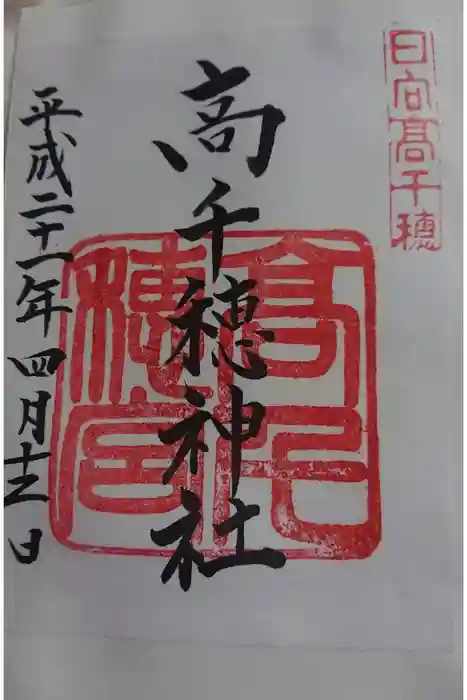 日向髙千穂
高千穂神社
平成二十一年四月十二日